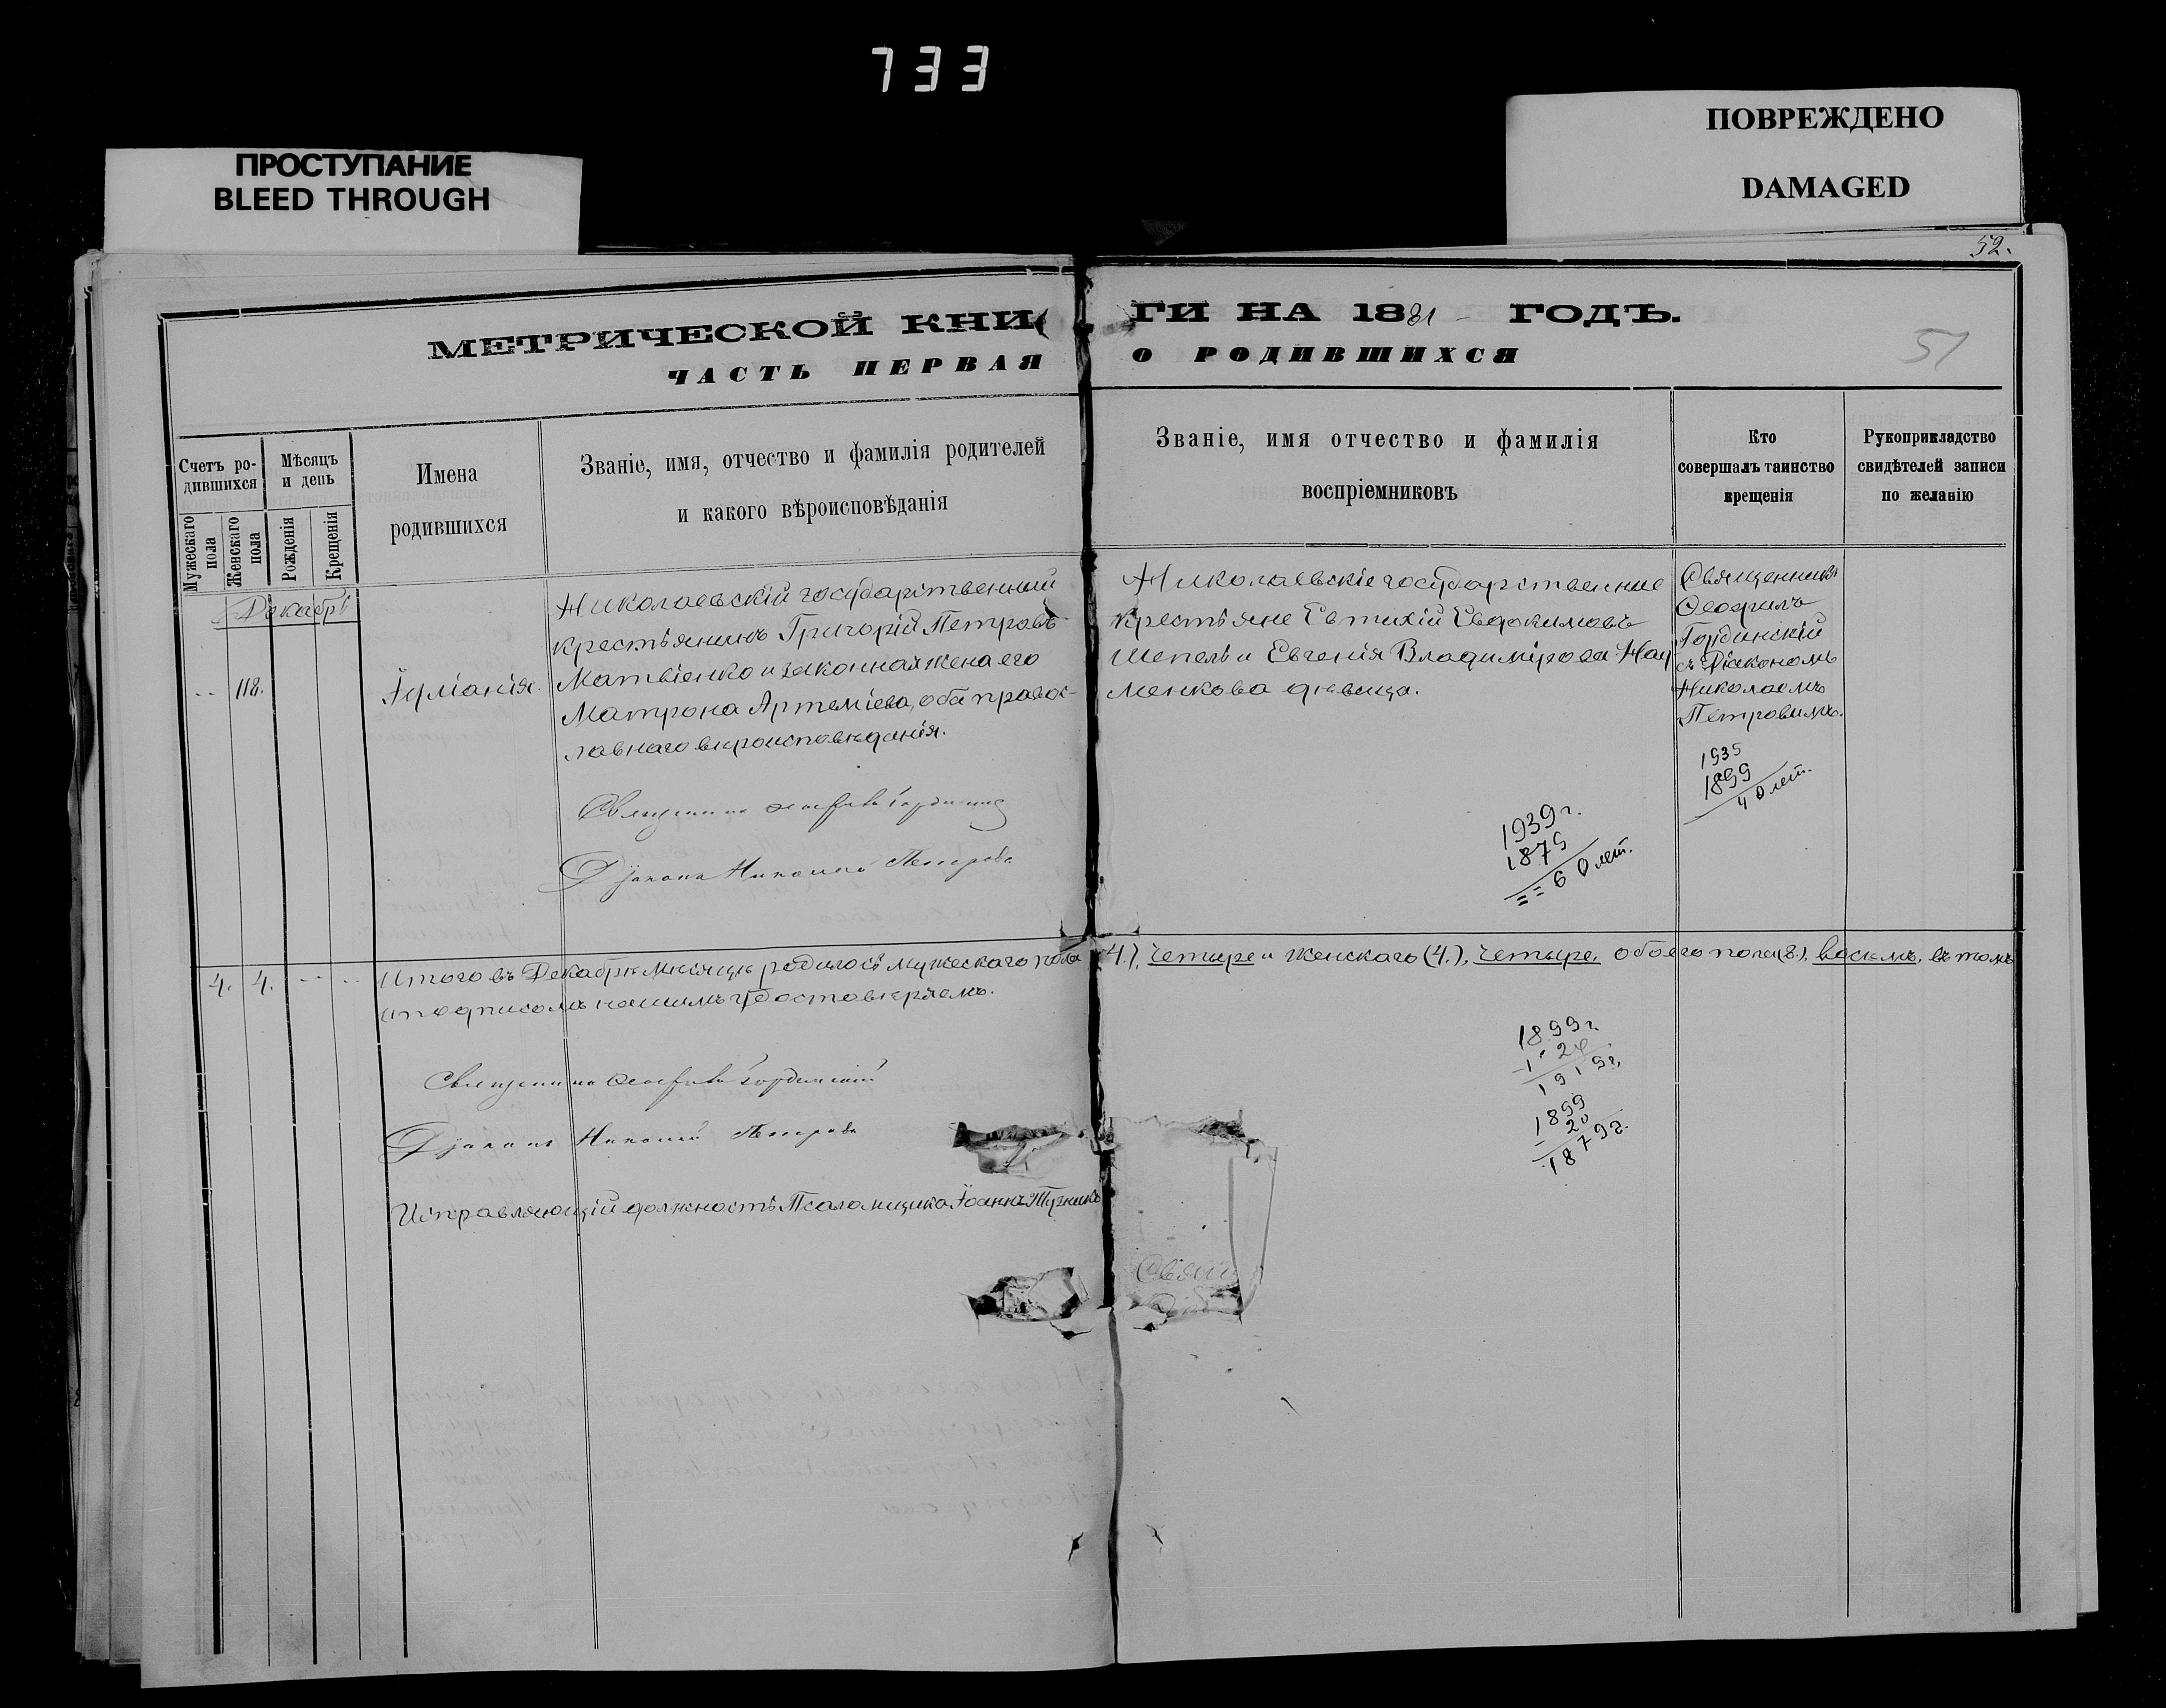 733
ПРОСТУПАНИЕ
BLEED THROUGH
ПОВРЕЖДЕНО
DAMAGED
52.
51
МЕТРИЧЕСКОЙ КНИГИ НА 1881 ГОДЪ.
ЧАСТЬ ПЕРВАЯ О РОДИВШИХСЯ
Счетъ ро-
дившихся
Мужескаго пола
Женскаго пола
Мѣсяцъ
и день
Рожденія
Крещенія
Имена
родившихся
Званіе, имя, отчество и фамилія родителей
и какого вѣроисповѣданія
Званіе, имя отчество и фамилія
воспріемниковъ
Кто
совершалъ таинство
крещенія
Рукоприкладство
свидѣтелей записи
по желанію
Декабрь
118.
Іуліанія.
Николаевскій государственный
крестьянинъ Григорій Петровъ
Матвіенко и законная жена его
Матрона Артеміева, оба правос-
лавнаго вѣроисповѣданія.
Николаевскіе государственные
крестьяне Евтихій Евдокимовъ
Шепель и Евгенія Владимірова Нау
менкова дѣвица.
Священникъ
Ѳеофилъ
Гординскій
съ Діакономъ
Николаемъ
Петровымъ.
Священникъ Ѳеофилъ Гординскій
Діаконъ Николай Петровъ
1935
1899
40 лет.
1939 г.
1879
= = 60 лет.
4. 4. Итого въ Декабрѣ мѣсяцѣ родилось мужескаго пола (4.), четыре и женскаго (4.), четыре, обоего пола (8.), восемь, въ томъ
и подписомъ нашимъ удостовѣряемъ.
Священникъ Ѳеофилъ Гординскій
Діаконъ Николай Петровъ
Исправляющій должность Псаломщика Іоаннъ
1899 г.
1919 г.
1899
20
1879 г.